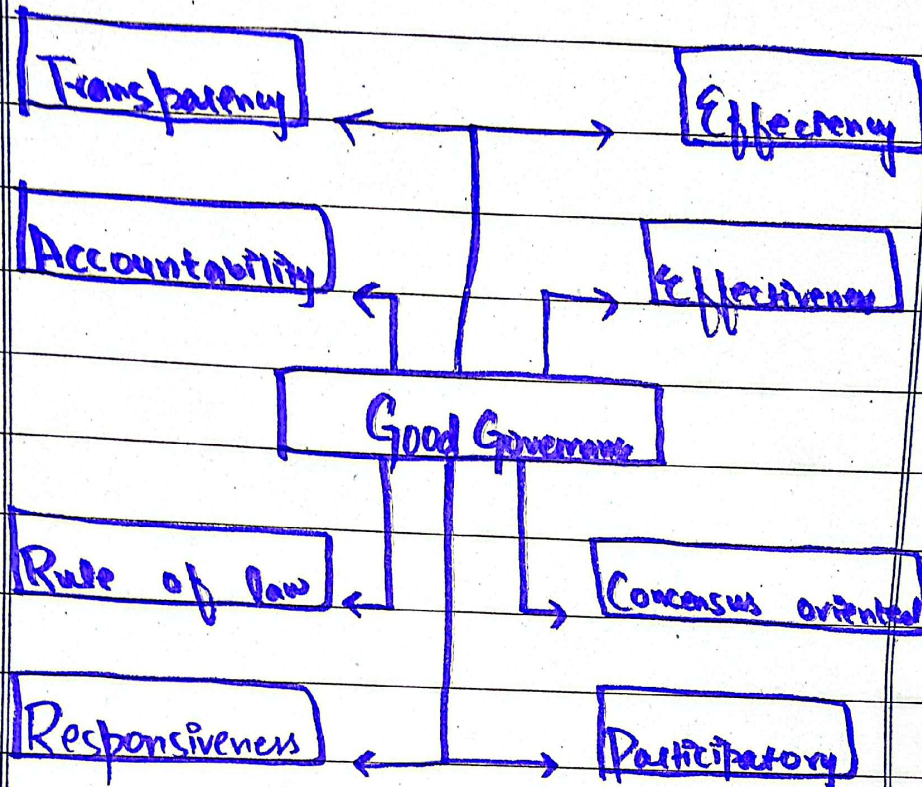 Transparency
Effeciency
Accountability
Effectiveness
Good Governance
Rule of law
Concensus oriented
Responsiveness
Participatory